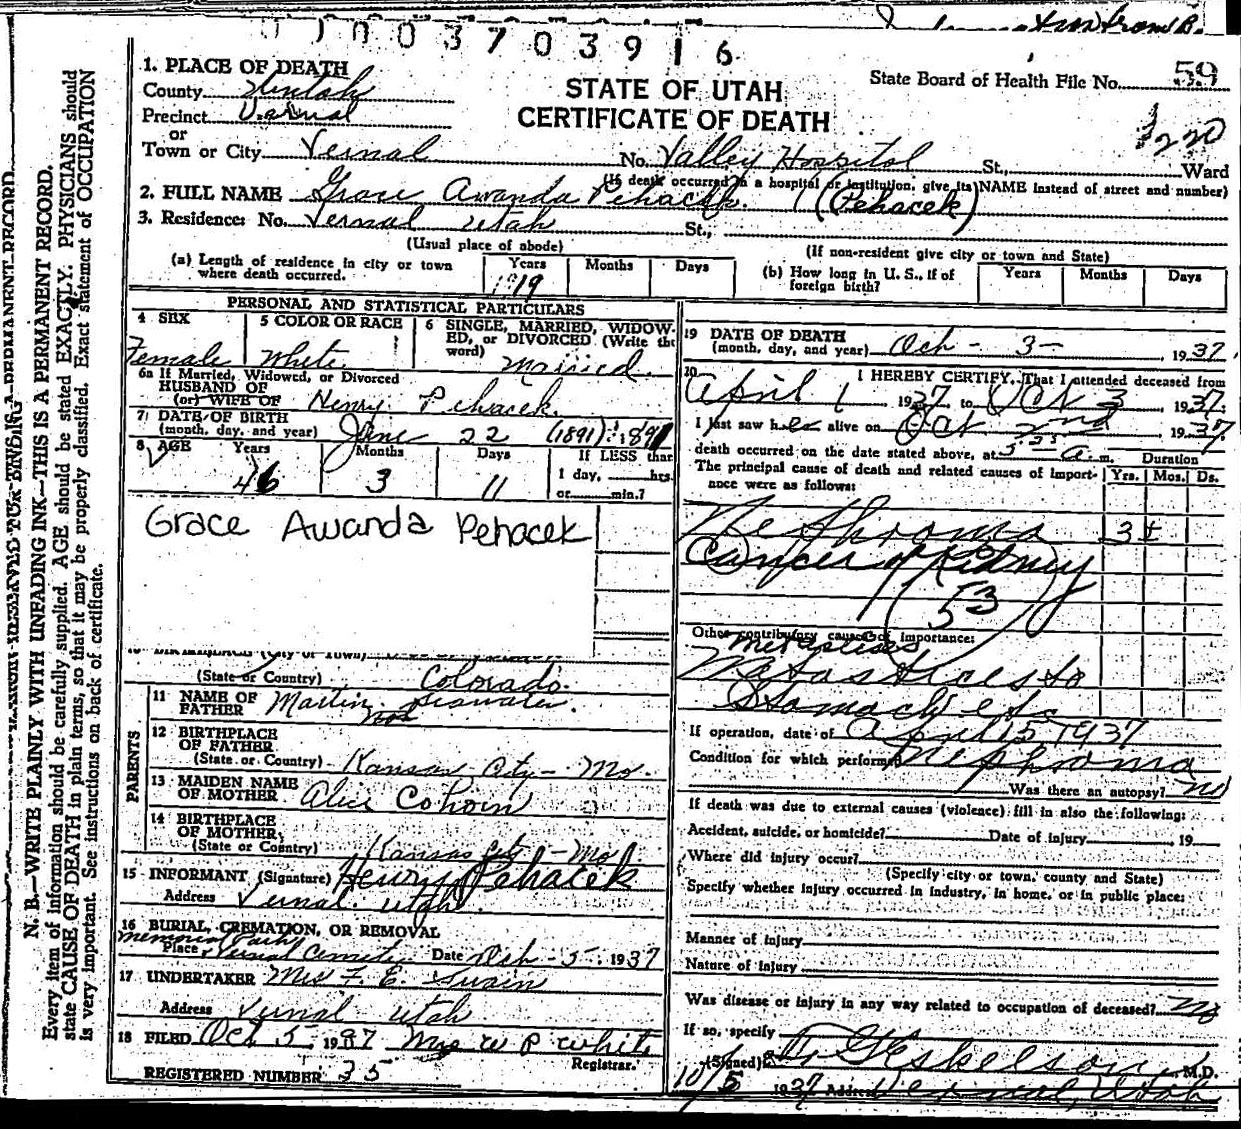 0003703916
1. PLACE OF DEATH
County Uintah
STATE OF UTAH
State Board of Health File No. 59
Precinct Vernal
CERTIFICATE OF DEATH
or
220
Town or City Vernal No. Valley Hospital St., Ward
(If death occurred in a hospital or institution, give its NAME instead of street and number)
2. FULL NAME Grace Awanda Pehacek. (Pehacek)
3. Residence: No. Vernal Utah St.,
(Usual place of abode) (If non-resident give city or town and State)
(a) Length of residence in city or town where death occurred. Years 19 Months Days
(b) How long in U. S., if of foreign birth? Years Months Days
PERSONAL AND STATISTICAL PARTICULARS
4 SEX Female
5 COLOR OR RACE White
6 SINGLE, MARRIED, WIDOWED, or DIVORCED (Write the word) Married.
6a If Married, Widowed, or Divorced
HUSBAND OF
(or) WIFE OF Henry Pehacek.
7 DATE OF BIRTH
(month, day, and year) June 22 (1891) 1891
8 AGE Years 46 Months 3 Days 11 If LESS than
1 day, hrs.
or min.?
Grace Awanda Pehacek
(State or Country) Colorado.
PARENTS
11 NAME OF FATHER Martin
12 BIRTHPLACE OF FATHER
(State or Country) Kansas City - Mo.
13 MAIDEN NAME OF MOTHER Alice Cohorn
14 BIRTHPLACE OF MOTHER
(State or Country) Kansas City - Mo.
15 INFORMANT (Signature) Henry Pehacek
Address Vernal. Utah.
16 BURIAL, CREMATION, OR REMOVAL
Memorial Park
Place Vernal Cemetery Date Oct - 5 - 1937
17 UNDERTAKER Mrs F. E. Swain
Address Vernal Utah
18 FILED Oct 5 1937 Mrs W P White
Registrar.
REGISTERED NUMBER 35
19 DATE OF DEATH
(month, day, and year) Oct - 3 - , 1937.
20 I HEREBY CERTIFY, That I attended deceased from
April 1 1937 to Oct 3, 1937.
I last saw her alive on Oct 2nd 1937
death occurred on the date stated above, at 5 25 a. m. Duration
The principal cause of death and related causes of importance were as follows: Yrs. Mos. Ds.
Nephroma 3 +
(Cancer of Kidney)
(53
Other contributory causes of importance:
Metastises
Metastices to
Stomach etc
If operation, date of April 15 1937
Condition for which performed Nephroma
Was there an autopsy? no
If death was due to external causes (violence) fill in also the following:
Accident, suicide, or homicide? Date of injury , 19
Where did injury occur?
(Specify city or town, county and State)
Specify whether injury occurred in industry, in home, or in public place:
Manner of injury
Nature of injury
Was disease or injury in any way related to occupation of deceased? No
If so, specify
(Signed) Eskelson, M.D.
10/5 1937 Address Vernal, Utah
N. B.—WRITE PLAINLY WITH UNFADING INK—THIS IS A PERMANENT RECORD.
Every item of information should be carefully supplied. AGE should be stated EXACTLY. PHYSICIANS should
state CAUSE OF DEATH in plain terms, so that it may be properly classified. Exact statement of OCCUPATION
is very important. See instructions on back of certificate.